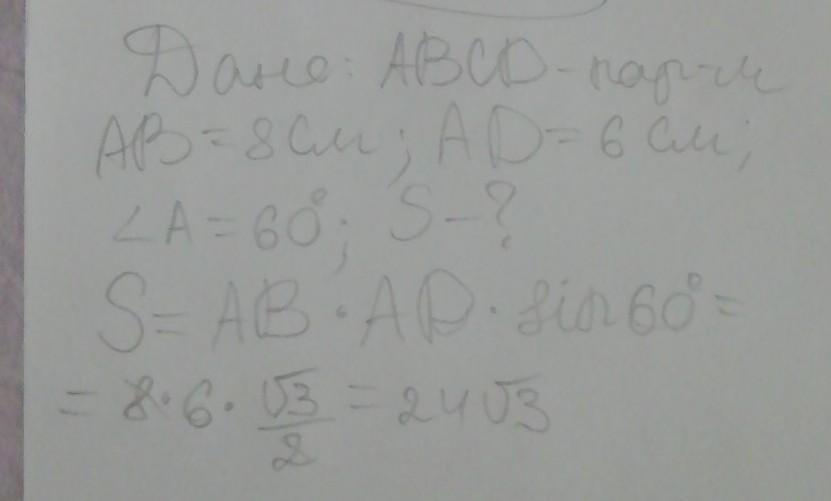 Дано: ABCD-пар-м
AB=8см; AD=6см;
∠A=60°; S-?
S=AB·AD·sin60°=
=8·6·√3/2=24√3